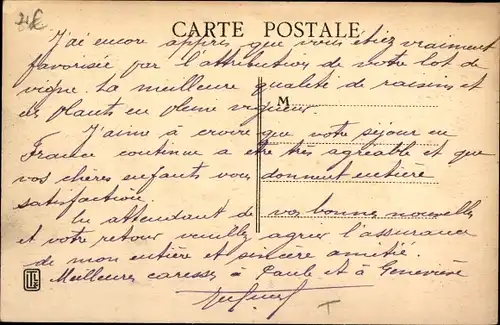 CARTE POSTALE
J'ai encore appris que vous étiez vraiment
favorisée par l'attribution de votre lot de
vigne. La meilleure qualité de raisins et
des plants en pleine vigueur.
M
J'aime à croire que votre séjour en
France continue a être très agréable et que
vos chères enfants vous donnent entière
satisfaction.
En attendant de vos bonnes nouvelles
et votre retour veuillez agréer l'assurance
de mon entière et sincère amitié.
Meilleures caresses à Paule et à Geneviève